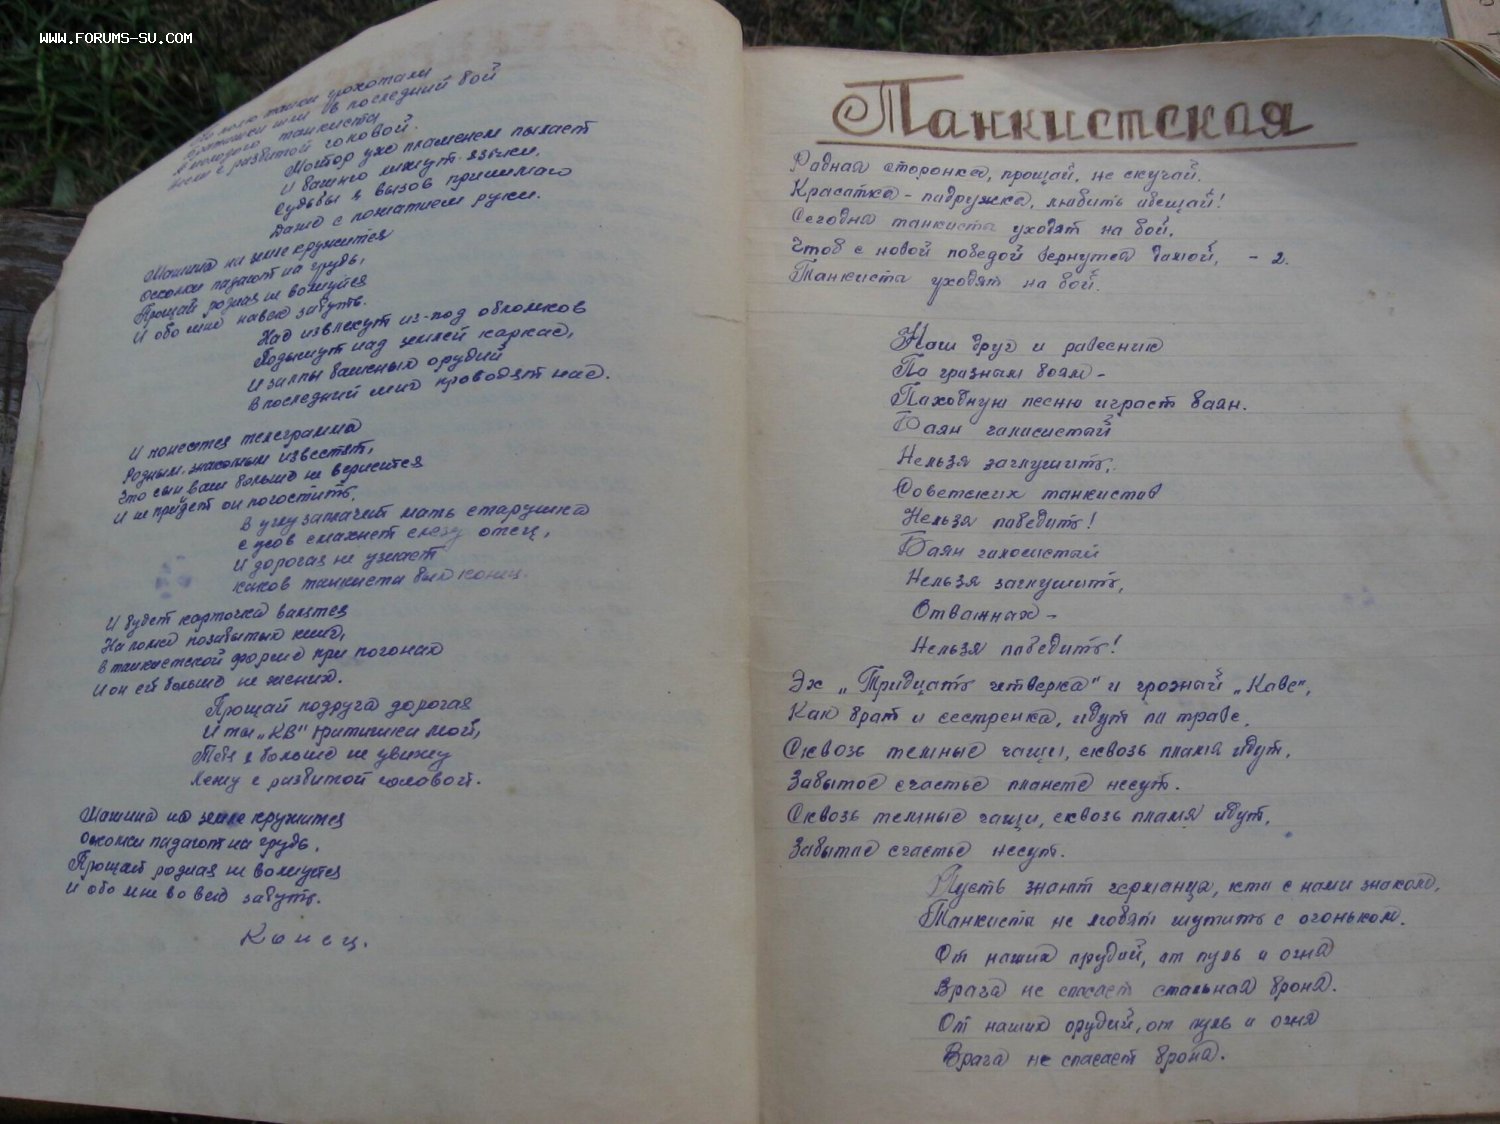 WWW.FORUMS-SU.COM
По полю танки грохотали
Братишки шли в последний бой
А молодого танкиста
несли с разбитой головой.
Мотор уже пламенем пылает
И башню лижут языки,
Судьбы я вызов принимаю
Даже с пожатием руки.
Машина на земле кружится
осколки падают на грудь,
Прощай родная не волнуйся
И обо мне навек забудь.
Над извлекут из-под обломков
Подымут над землей каркас,
И залпы башеных орудий
В последний миг проводят нас.
И понесется телеграмма
Родным, знакомым известят,
Что сын ваш больше не вернется
И не прийдет он погостить.
В углу заплачет мать старушка
с усов смахнет слезу отец,
И дорогая не узнает
каков танкиста был конец.
И будет карточка валятся
На полке позабытых книг,
В танкистской форме при погонах
И он ей больше не жених.
Прощай подруга дорогая
И ты „КВ" братишка мой,
Тебя я больше не увижу
Лежу с разбитой головой.
Машина на земле кружится
Осколки падают на грудь,
Прощай родная не волнуйся
И обо мне во век забудь.
Конец.
Танкистская
Радная сторонка, прощай, не скучай.
Красатка - падружка, любить абещай!
Сегодня танкисты уходят на бой,
Чтоб с новой победой вернутся дамой, - 2.
Танкисты уходят на бой.
Наш друг и равесник
Па грязным боям -
Паходную песню играет баян.
Баян галасистый
Нельзя заглушить,
Советских танкистав
Нельзя пабедить!
Баян галосистый
Нельзя заглушить,
Отважных -
Нельзя пабедить!
Эх „Тридцать четверка" и грозный „Каве",
Как брат и сестренка, идут па траве.
Сквозь темные чащи, сквозь пламя идут,
Забытое счастье планете несут.
Сквозь темные чащи, сквозь пламя идут,
Забытае счастье несут.
Пусть знают германцы, кто с нами знаком,
Танкисты не любят шутить с огоньком.
От наших арудий, от пуль и огня
Врага не спасает стальная броня.
От наших орудий, от пуль и огня
Врага не спасает броня.